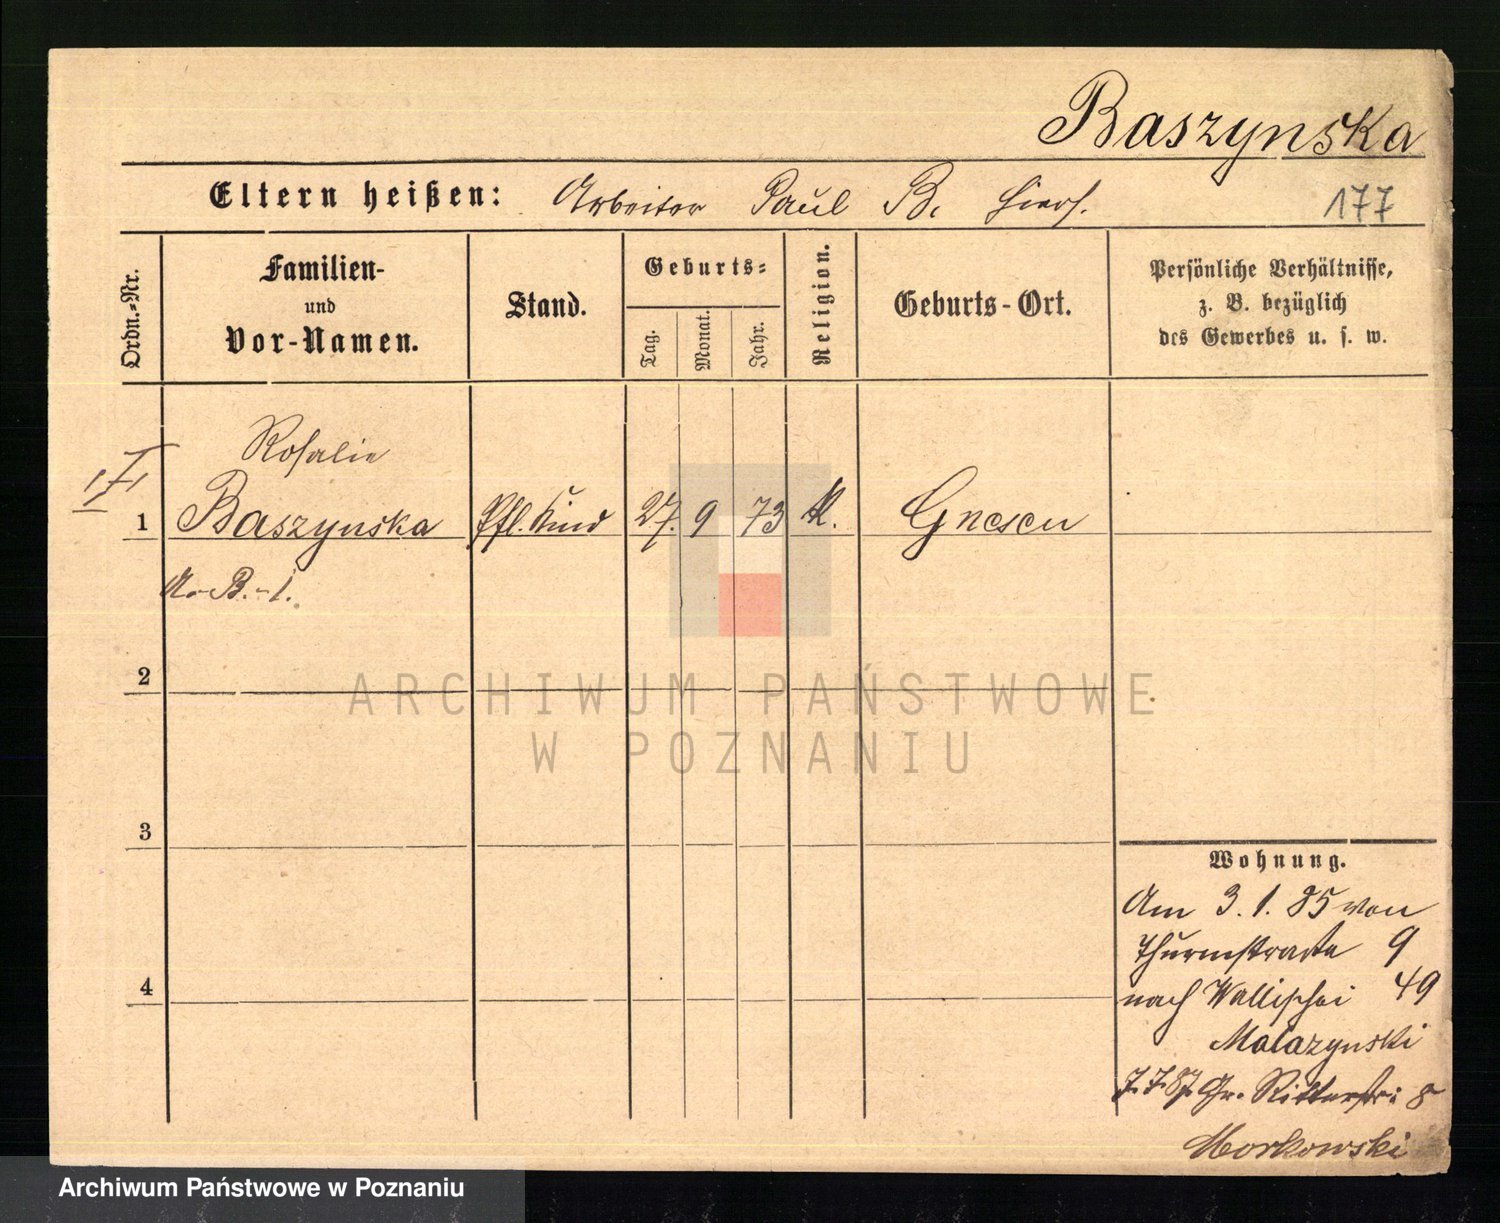 Baszynska
Eltern heißen: Arbeiter Paul B. hiers.
177
Ordn.-Nr.
Familien-
und
Vor-Namen.
Stand.
Geburts-
Tag.
Monat.
Jahr.
Religion.
Geburts-Ort.
Persönliche Verhältnisse,
z. B. bezüglich
des Gewerbes u. s. w.
Rosalie
1 Baszynska Pfl. Kind 27. 9 73 k. Gnesen
2
3
4
Wohnung.
Am 3. 1. 85 von
Thurmstraße 9
nach Wallischei 49
Malazynski
7.7.87. Gr. Ritterstr: 8
Morkowski
ARCHIWUM PAŃSTWOWE
W POZNANIU
Archiwum Państwowe w Poznaniu